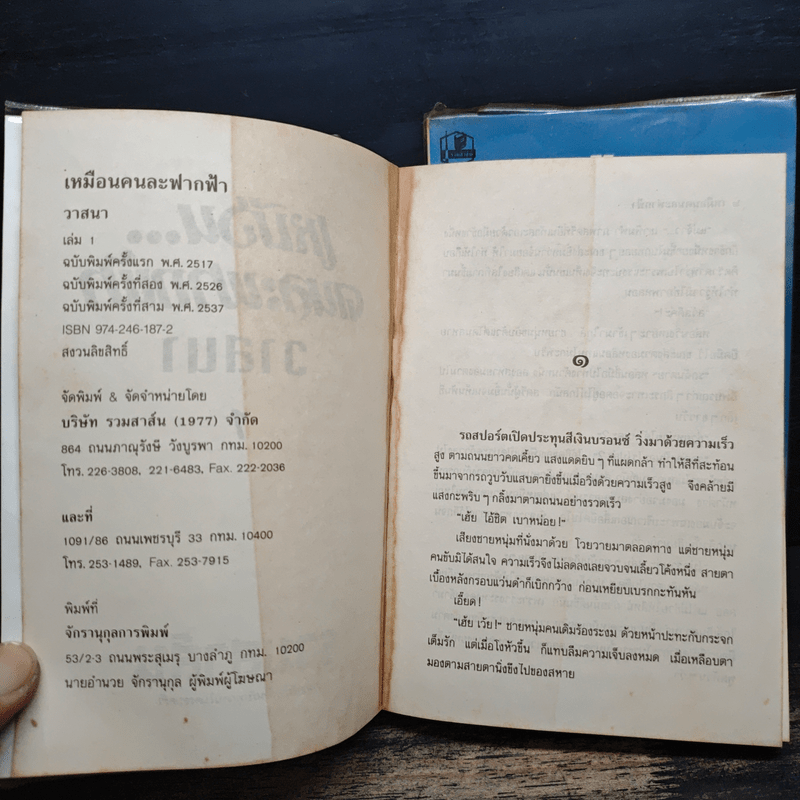 เหมือนคนละฟากฟ้า
วาสนา
เล่ม 1
ฉบับพิมพ์ครั้งแรก พ.ศ. 2517
ฉบับพิมพ์ครั้งที่สอง พ.ศ. 2526
ฉบับพิมพ์ครั้งที่สาม พ.ศ. 2537
ISBN 974-246-187-2
สงวนลิขสิทธิ์
จัดพิมพ์ & จัดจำหน่ายโดย
บริษัท รวมสาส์น (1977) จำกัด
864 ถนนภาณุรังษี วังบูรพา กทม. 10200
โทร. 226-3808, 221-6483, Fax. 222-2036
และที่
1091/86 ถนนเพชรบุรี 33 กทม. 10400
โทร. 253-1489, Fax. 253-7915
พิมพ์ที่
จักรานุกูลการพิมพ์
53/2-3 ถนนพระสุเมรุ บางลำภู กทม. 10200
นายอำนวย จักรานุกูล ผู้พิมพ์ผู้โฆษณา
๑
รถสปอร์ตเปิดประทุนสีเงินบรอนซ์ วิ่งมาด้วยความเร็ว
สูง ตามถนนยาวคดเคี้ยว แสงแดดยิบ ๆ ที่แผดกล้า ทำให้สีที่สะท้อน
ขึ้นมาจากรถวูบวับแสบตายิ่งขึ้นเมื่อวิ่งด้วยความเร็วสูง จึงคล้ายมี
แสงกะพริบ ๆ กลิ้งมาตามถนนอย่างรวดเร็ว
"เฮ้ย ไอ้ชิต เบาหน่อย!"
เสียงชายหนุ่มที่นั่งมาด้วย โวยวายมาตลอดทาง แต่ชายหนุ่ม
คนขับมิได้สนใจ ความเร็วจึงไม่ลดลงเลยจวบจนเลี้ยวโค้งหนึ่ง สายตา
เบื้องหลังกรอบแว่นดำก็เบิกกว้าง ก่อนเหยียบเบรกกะทันหัน
เอี๊ยด!
"เฮ้ย เว้ย!" ชายหนุ่มคนเดิมร้องระงม ด้วยหน้าปะทะกับกระจก
เต็มรัก แต่เมื่อโงหัวขึ้น ก็แทบลืมความเจ็บลงหมด เมื่อเหลือบตา
มองตามสายตานิ่งขึงไปของสหาย